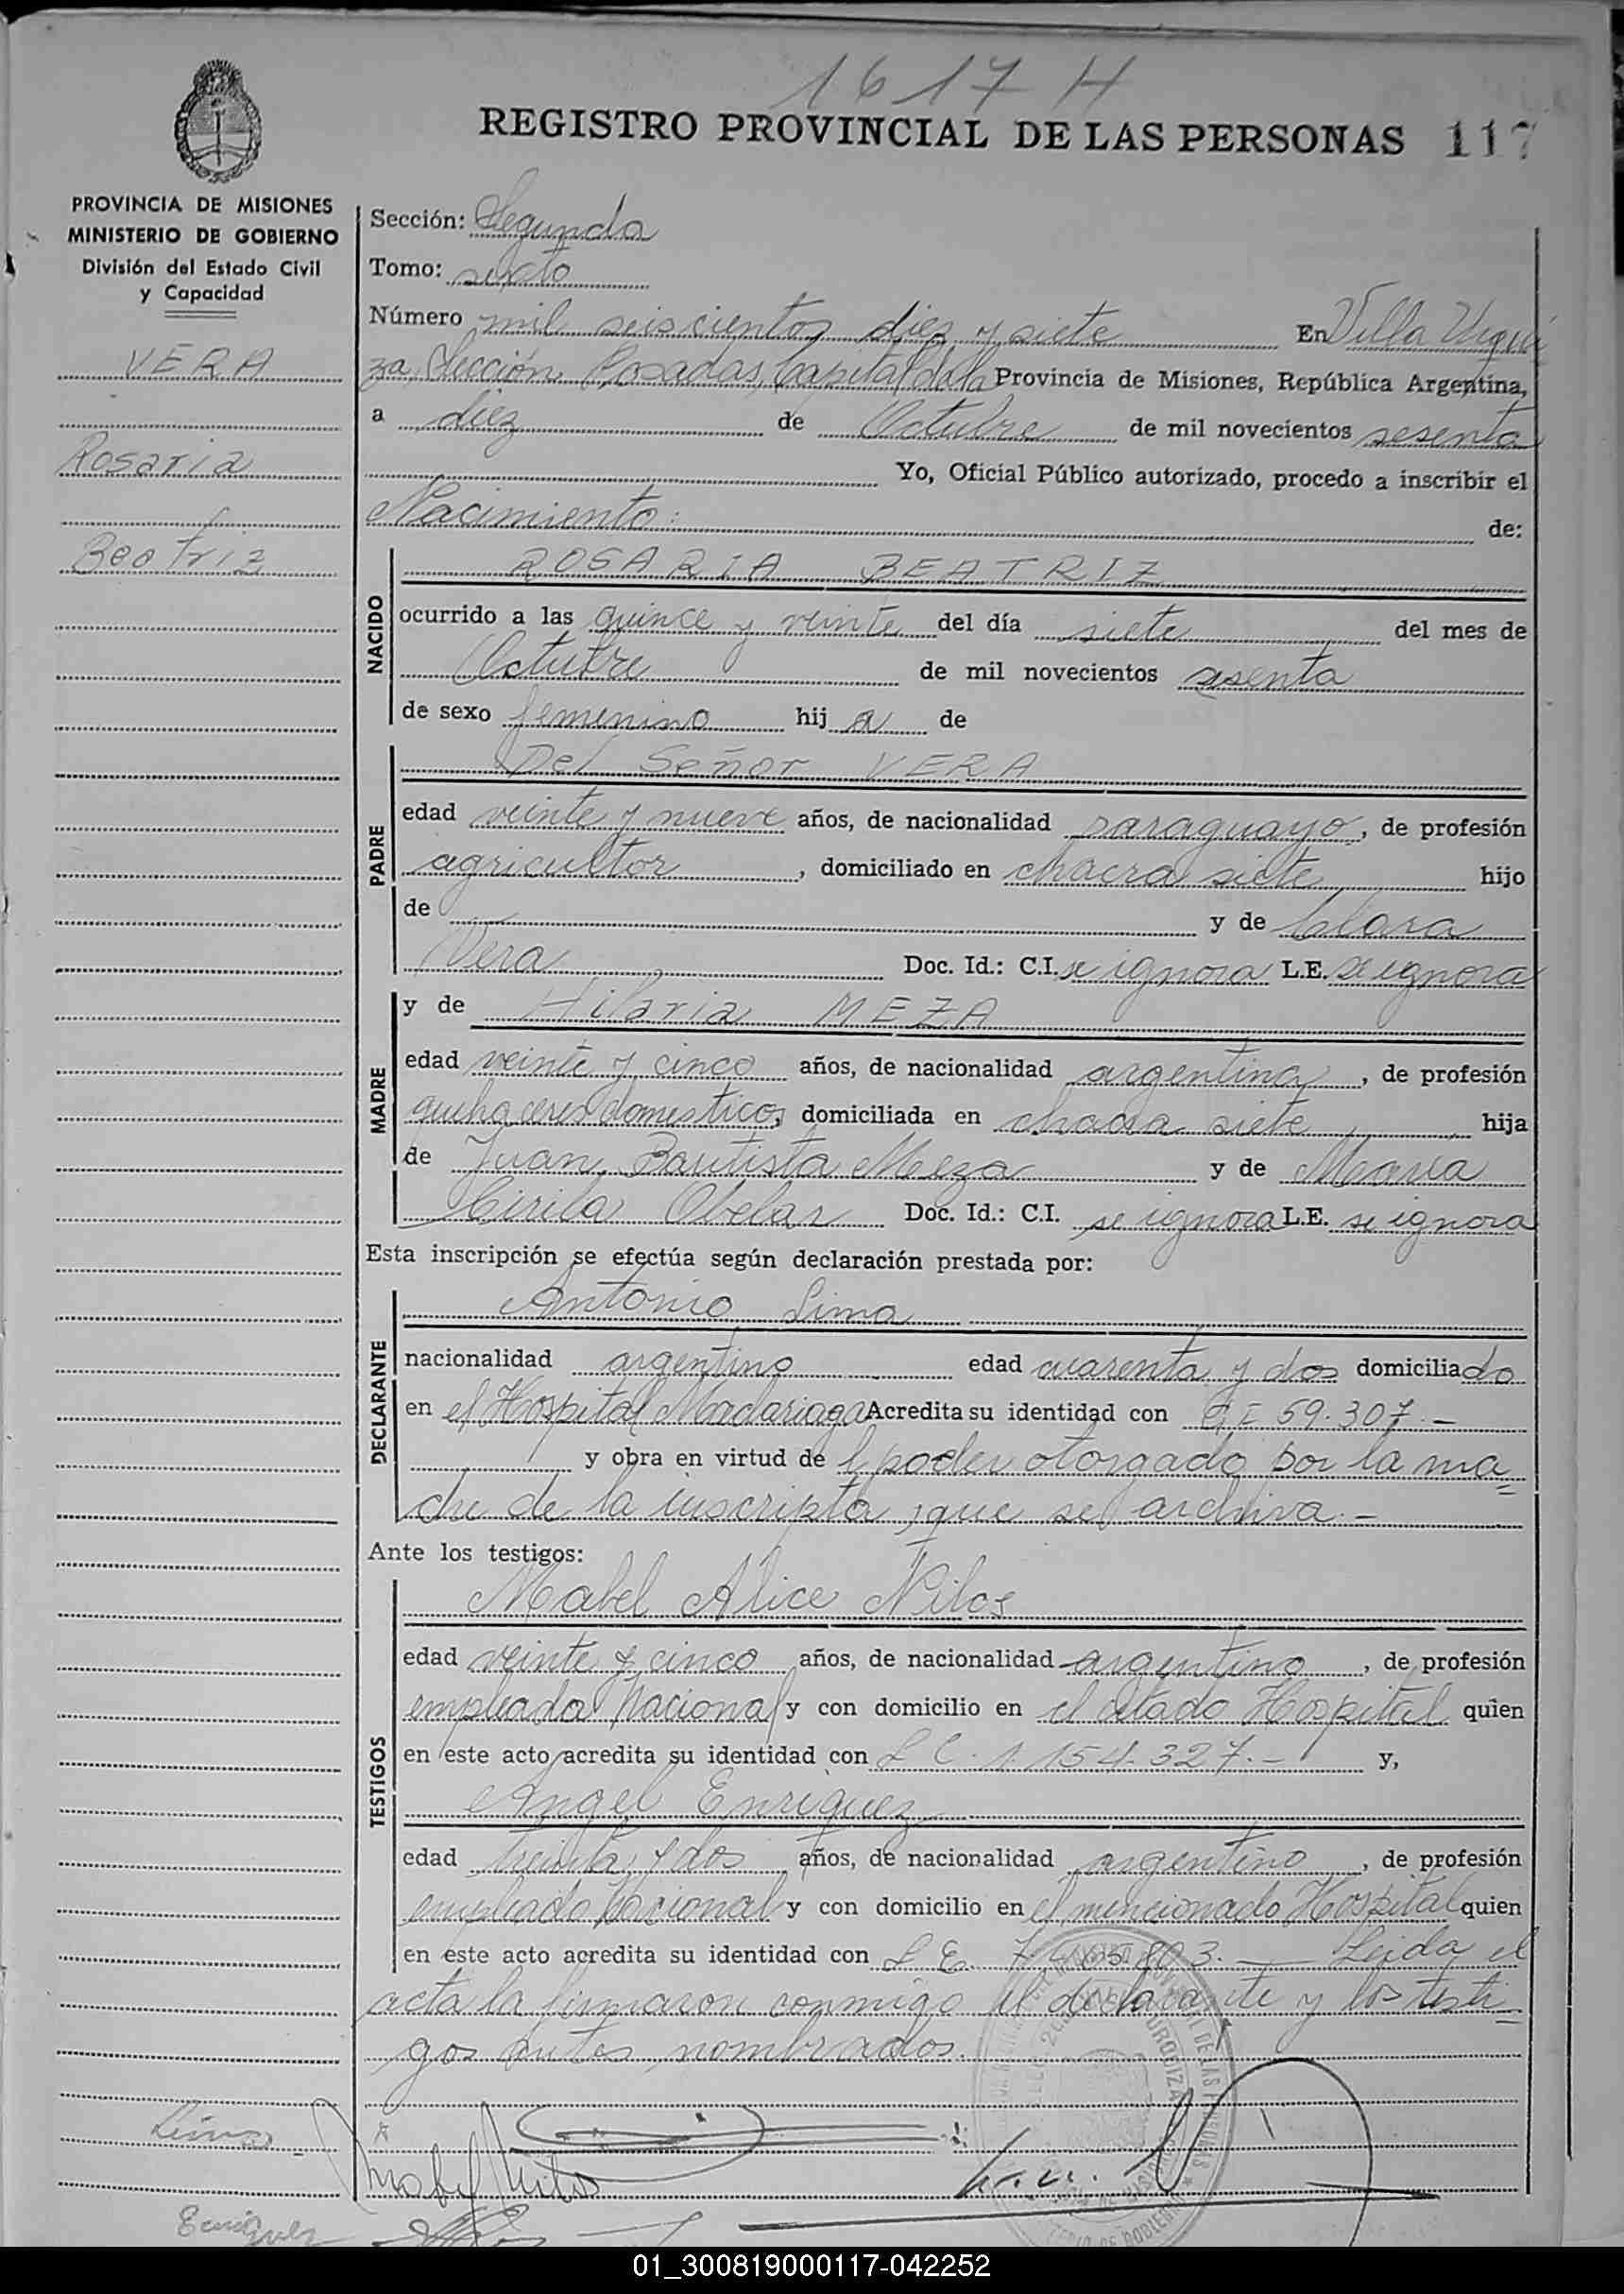 1617 H
REGISTRO PROVINCIAL DE LAS PERSONAS 117
PROVINCIA DE MISIONES
MINISTERIO DE GOBIERNO
División del Estado Civil
y Capacidad
VERA
Rosaria
Beatriz
Sección: Segunda
Tomo: sexto
Número mil seiscientos diez y siete En Villa Urqui
za, Sección Posadas, Capital de la Provincia de Misiones, República Argentina,
a diez de Octubre de mil novecientos sesenta
Yo, Oficial Público autorizado, procedo a inscribir el
Nacimiento: de:
NACIDO
ROSARIA BEATRIZ
ocurrido a las quince y veinte del día siete del mes de
Octubre de mil novecientos sesenta
de sexo femenino hij a de
PADRE
Del Señor VERA
edad veinte y nueve años, de nacionalidad paraguayo, de profesión
agricultor, domiciliado en chacra siete hijo
de y de Clara
Vera Doc. Id.: C.I. se ignora L.E. se ignora
MADRE
y de Hilaria MEZA
edad veinte y cinco años, de nacionalidad argentina, de profesión
quehaceres domesticos, domiciliada en chacra siete hija
de Juan Bautista Meza y de María
Cirila Obelar Doc. Id.: C.I. se ignora L.E. se ignora
Esta inscripción se efectúa según declaración prestada por:
DECLARANTE
Antonio Lima
nacionalidad argentino edad cuarenta y dos domiciliado
en el Hospital Madariaga Acredita su identidad con 59.307.-
y obra en virtud de l poder otorgado por la ma=
dre de la inscripta, que se archiva.-
Ante los testigos:
TESTIGOS
Mabel Alice Nilos
edad veinte y cinco años, de nacionalidad argentino, de profesión
empleada Nacional y con domicilio en el citado Hospital quien
en este acto acredita su identidad con L C. 1.154.327.- y,
Angel Enriquez
edad treinta y dos años, de nacionalidad argentino, de profesión
empleado Nacional y con domicilio en el mencionado Hospital quien
en este acto acredita su identidad con L E. Leida el
acta la firmaron conmigo el declarante y los testi=
gos antes nombrados.
Lima
Mabel Nilos
Enriquez
01_300819000117-042252